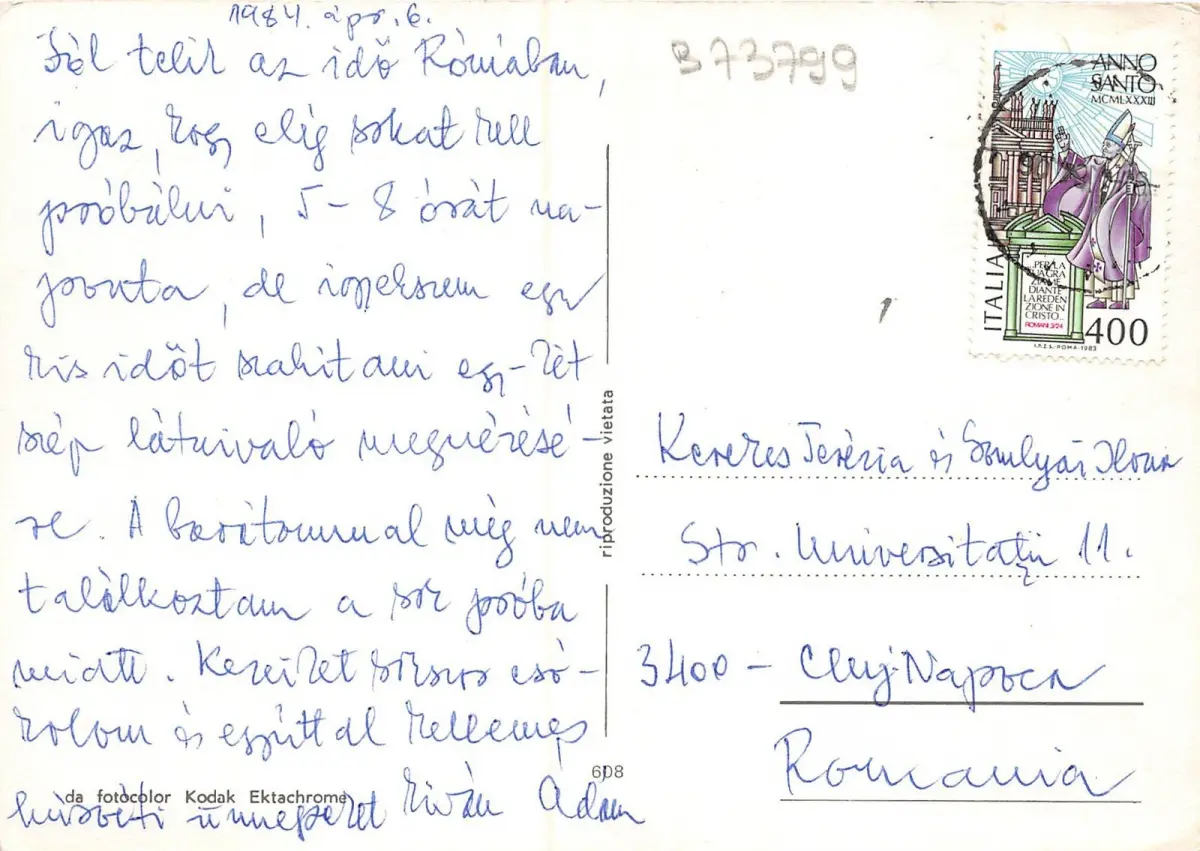 1984. ápr. 6.
Jól telik az idő Rómában,
igaz, hogy elég sokat kell
próbálni, 5-8 órát na-
ponta, de igyekszem egy
kis időt szakítani egy-két
szép látnivaló megnézésé-
re. A barátommal még nem
találkoztam a sok próba
miatt. Kezeiket sokszor csó-
kolom és egyúttal kellemes
húsvéti ünnepeket kíván Ádám
da fotocolor Kodak Ektachrome
608
riproduzione vietata
B73799
ANNO
SANTO
MCMLXXXIII
ITALIA
PER LA
SUA GRA
ZIA ME
DIANTE
LA REDEN
ZIONE IN
CRISTO...
ROMANI 3/24
400
I.P.Z.S.-ROMA-1983
Keresztes Terézia és Somlyai Ilona
Str. Universitații 11.
3400 - Cluj-Napoca
Romania